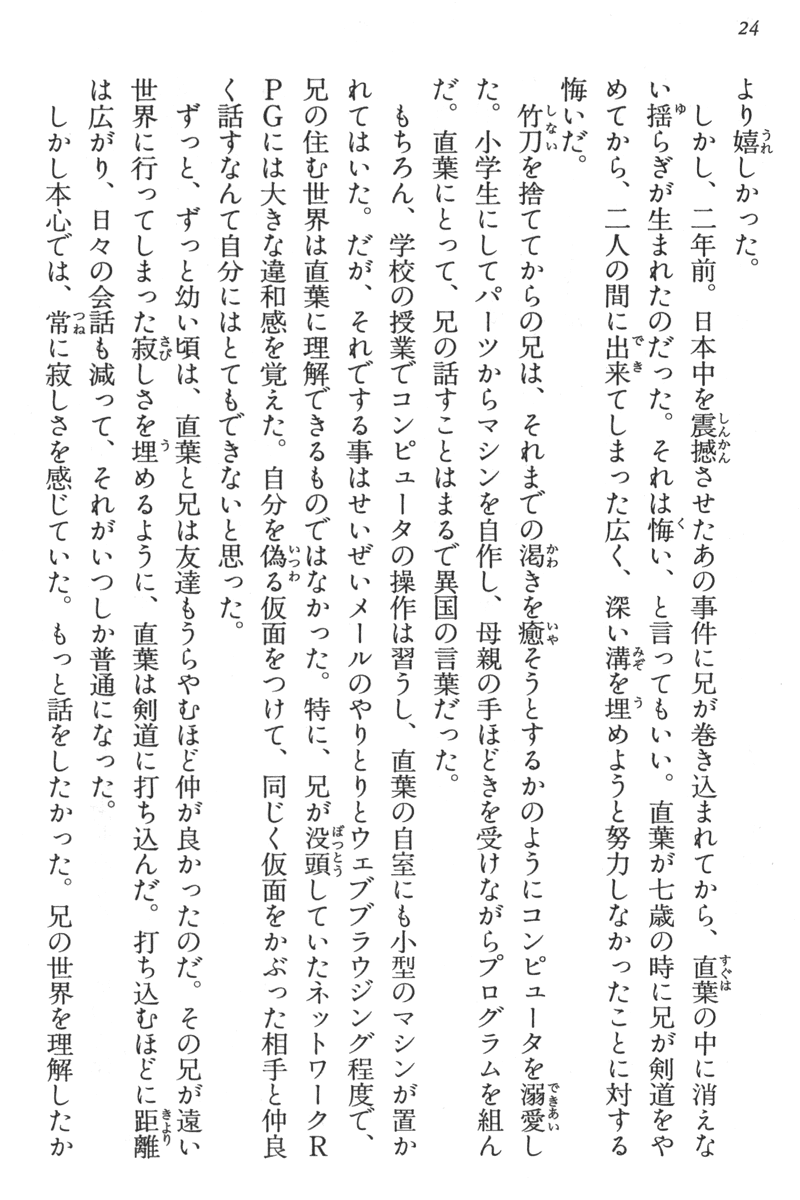 24
より嬉しかった。
しかし、二年前。日本中を震撼させたあの事件に兄が巻き込まれてから、直葉の中に消えな
い揺らぎが生まれたのだった。それは悔い、と言ってもいい。直葉が七歳の時に兄が剣道をや
めてから、二人の間に出来てしまった広く、深い溝を埋めようと努力しなかったことに対する
悔いだ。
竹刀を捨ててからの兄は、それまでの渇きを癒そうとするかのようにコンピュータを溺愛し
た。小学生にしてパーツからマシンを自作し、母親の手ほどきを受けながらプログラムを組ん
だ。直葉にとって、兄の話すことはまるで異国の言葉だった。
もちろん、学校の授業でコンピュータの操作は習うし、直葉の自室にも小型のマシンが置か
れてはいた。だが、それでする事はせいぜいメールのやりとりとウェブブラウジング程度で、
兄の住む世界は直葉に理解できるものではなかった。特に、兄が没頭していたネットワークR
PGには大きな違和感を覚えた。自分を偽る仮面をつけて、同じく仮面をかぶった相手と仲良
く話すなんて自分にはとてもできないと思った。
ずっと、ずっと幼い頃は、直葉と兄は友達もうらやむほど仲が良かったのだ。その兄が遠い
世界に行ってしまった寂しさを埋めるように、直葉は剣道に打ち込んだ。打ち込むほどに距離
は広がり、日々の会話も減って、それがいつしか普通になった。
しかし本心では、常に寂しさを感じていた。もっと話をしたかった。兄の世界を理解したか